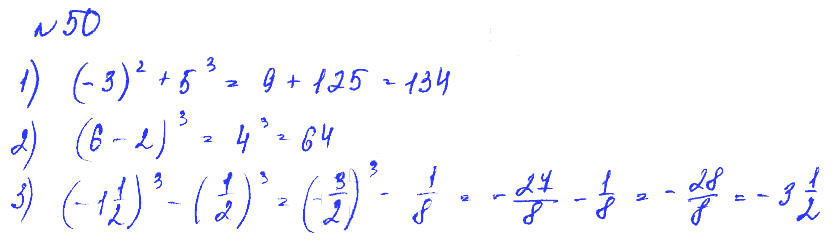 №50
1) (-3)² + 5³ = 9 + 125 = 134
2) (6 - 2)³ = 4³ = 64
3) (-1 1/2)³ - (1/2)³ = (-3/2)³ - 1/8 = -27/8 - 1/8 = -28/8 = -3 1/2